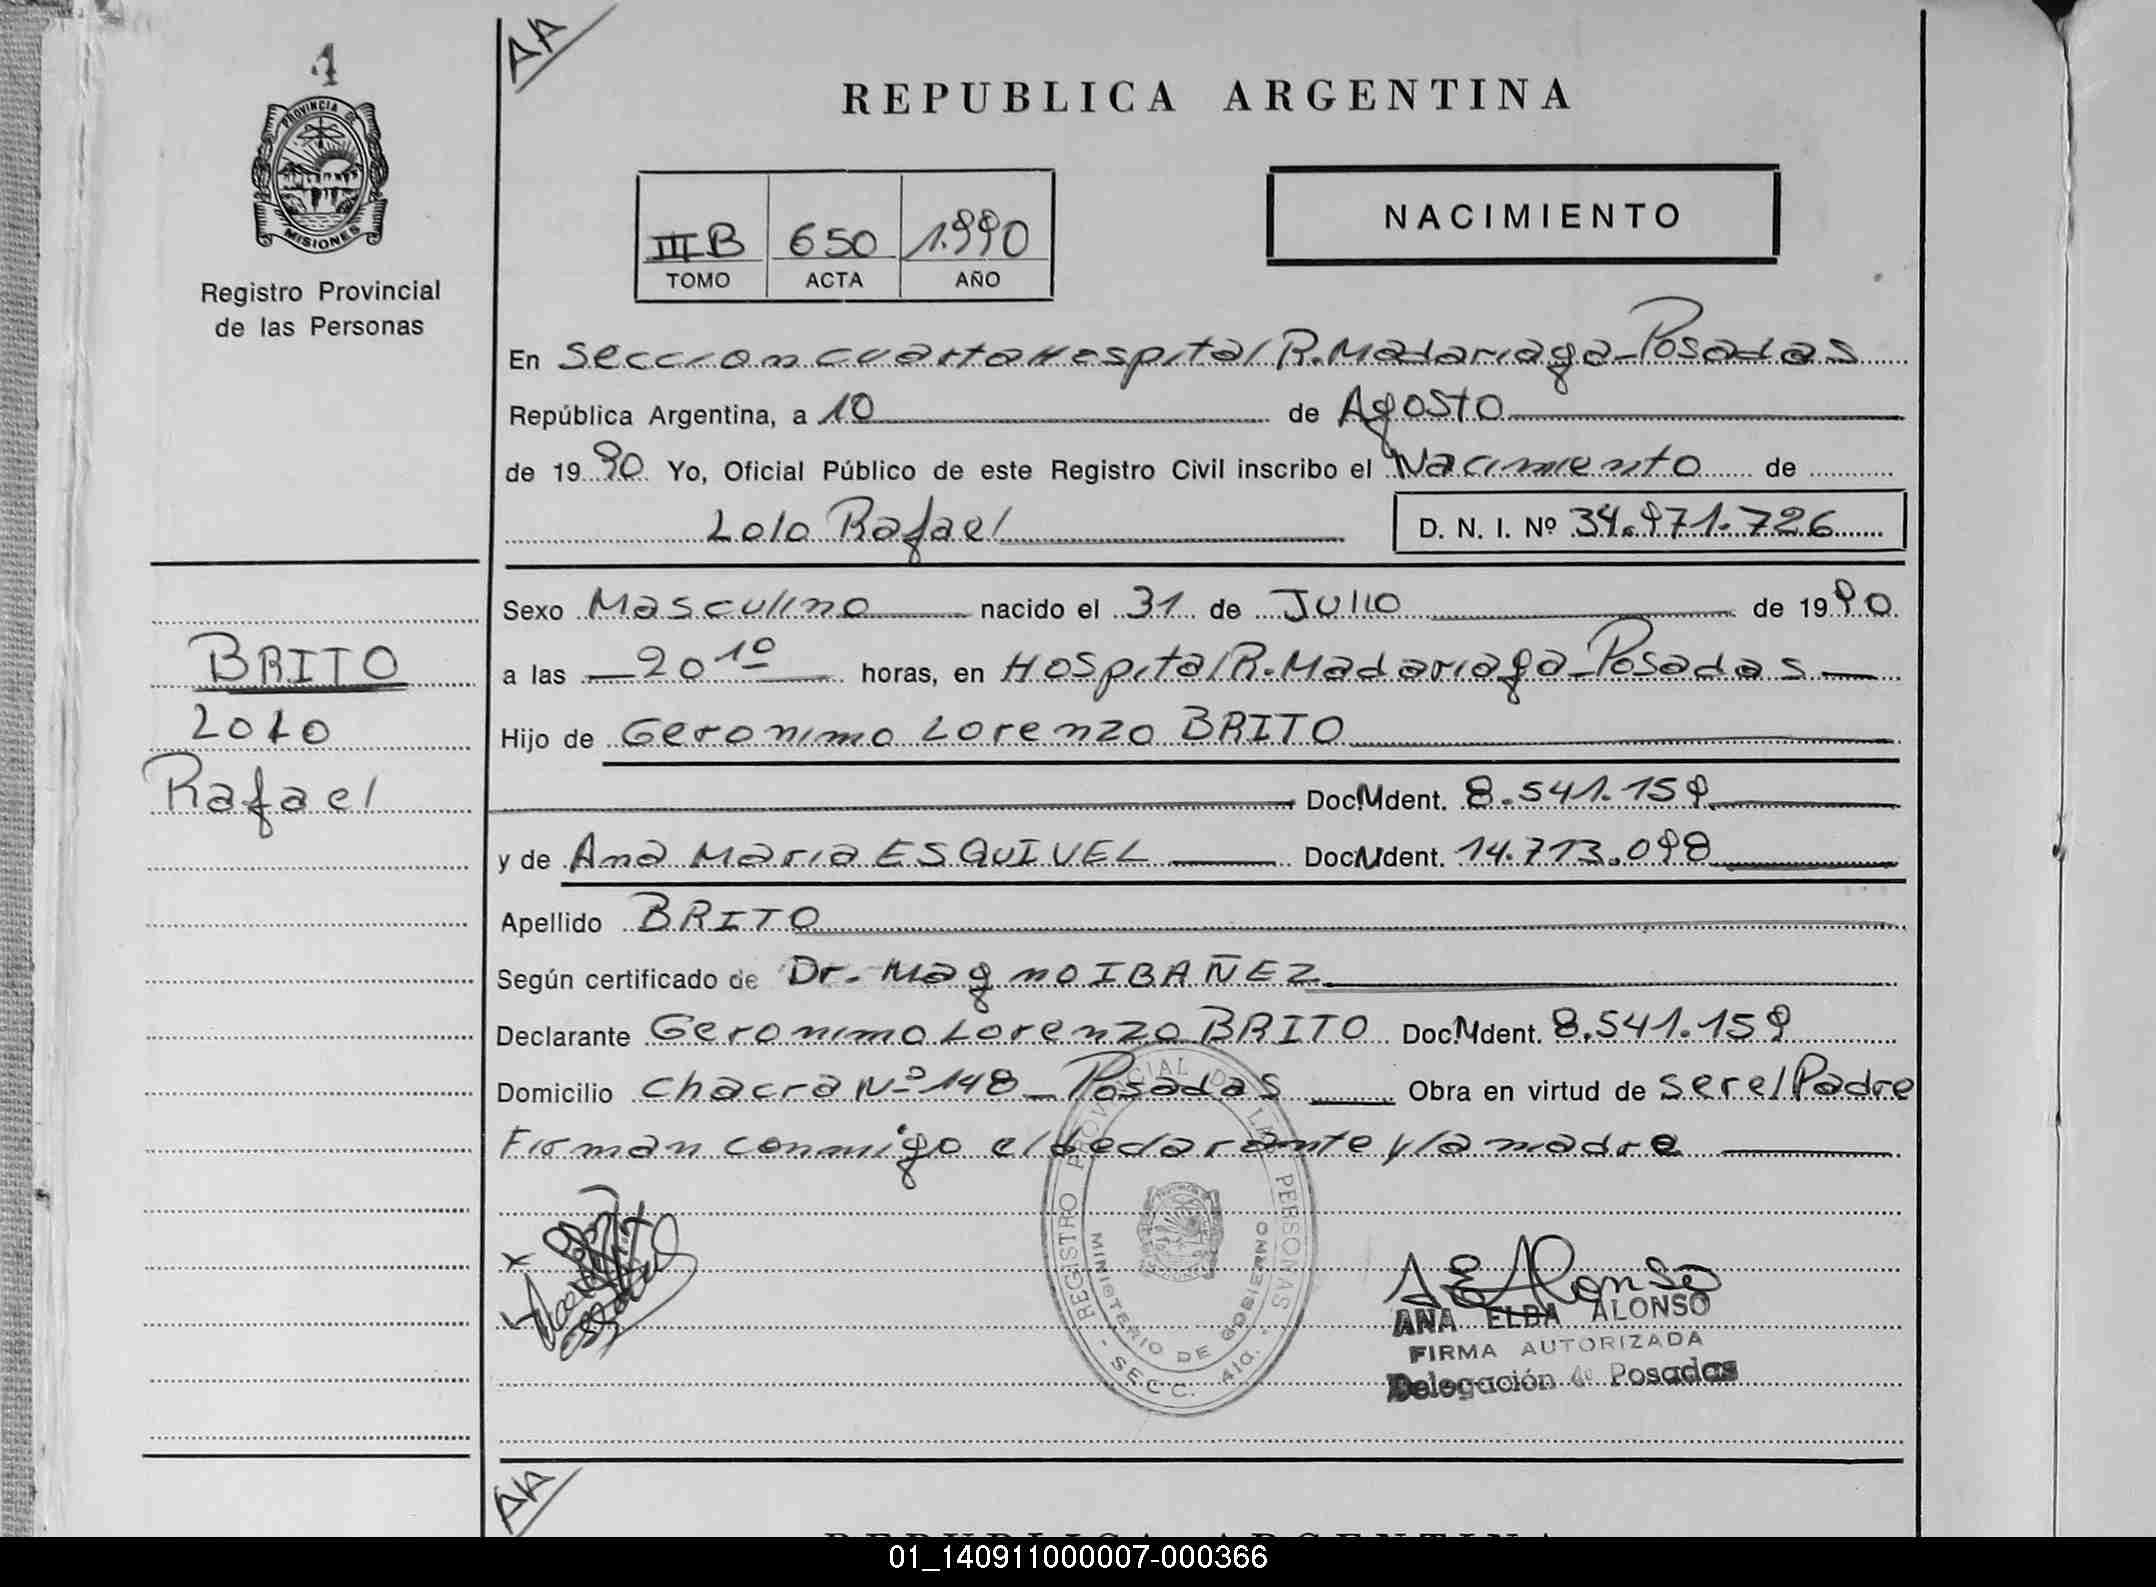 1
AA
PROVINCIA DE
MISIONES
Registro Provincial
de las Personas
REPUBLICA ARGENTINA
III B 650 1.990
TOMO ACTA AÑO
NACIMIENTO
En Seccion cuarta Hospital R. Madariaga - Posadas
República Argentina, a 10 de Agosto
de 1990 Yo, Oficial Público de este Registro Civil inscribo el Nacimiento de
Lolo Rafael D. N. I. Nº 34.971.726
BRITO
Lolo
Rafael
Sexo Masculino nacido el 31 de Julio de 1990
a las 20 10 horas, en Hospital R. Madariaga - Posadas
Hijo de Geronimo Lorenzo BRITO
Doc. Ident. 8.541.159
y de Ana Maria ESQUIVEL Doc. Ident. 14.713.098
Apellido BRITO
Según certificado de Dr. Magno IBAÑEZ
Declarante Geronimo Lorenzo BRITO Doc. Ident. 8.541.159
Domicilio Chacra Nº 148 - Posadas Obra en virtud de ser el Padre
Firman conmigo el declarante y la madre
REGISTRO PROVINCIAL DE LAS PERSONAS
MINISTERIO DE GOBIERNO
- SECC. 4ta. -
A E Alonso
ANA ELBA ALONSO
FIRMA AUTORIZADA
Delegación de Posadas
AA
REPUBLICA ARGENTINA
01_140911000007-000366